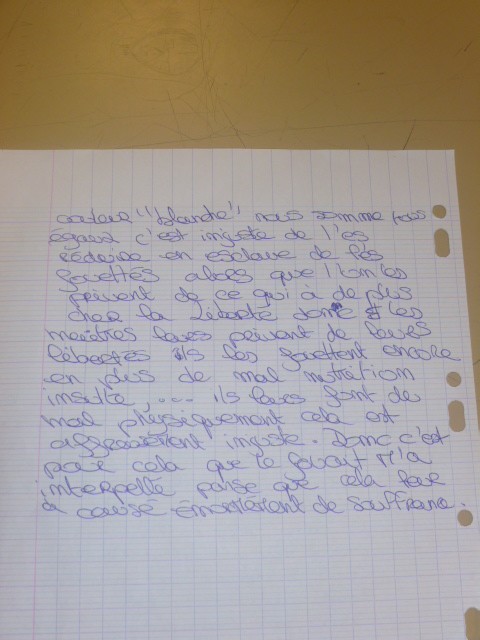 couleur "blanche" nous somme tous
égaux c'est injuste de l'es
réduire en esclave de les
fouettés alors que l'on les
privent de ce qui à de plus
cher la Liberté donc les
maîtres leurs privent de leurs
libertés ils les fouettent encore
en plus de mal nutrition
insulte, ... ils leurs font de
mal physiquement cela est
affreusement injuste. Donc c'est
pour cela que le fouait m'a
interpellé parse que cela leur
à causé énormément de souffrance.